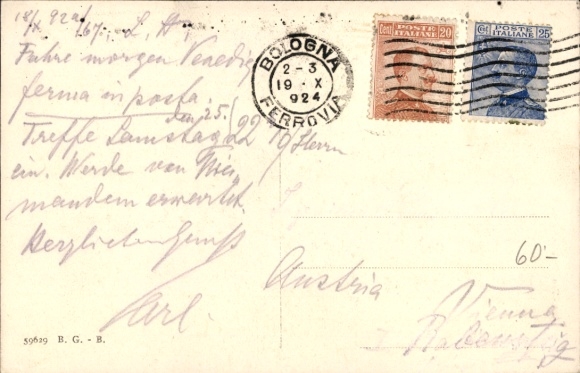 18/X 924
Fahre morgen Venedig
ferma in posta.
am 25./
Treffe Samstag 22 10
ein. Werde von Nie-
mandem erwartet.
Herzlichen Gruß
Karl.
BOLOGNA
2-3
19 X
924
FERROVIA
POSTE ITALIANE
Cent 20
POSTE ITALIANE
Cent 25
Herrn
Austria
Vienna
60-
59629 B. G. - B.